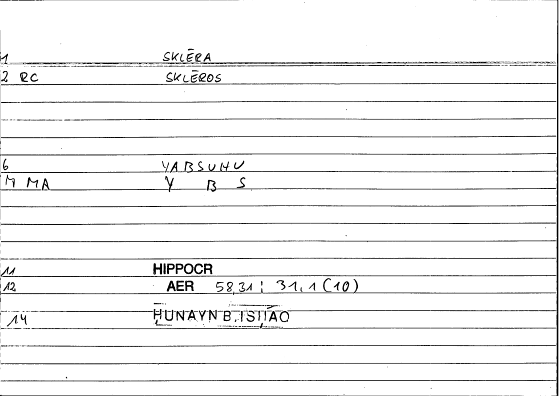 1 SKLĒRA
2 RC SKLĒROS
6 YABSUHU
M MA Y B S
11 HIPPOCR
12 AER 58,31 ; 31,1 (10)
14 ḤUNAYN B. ISḤĀQ